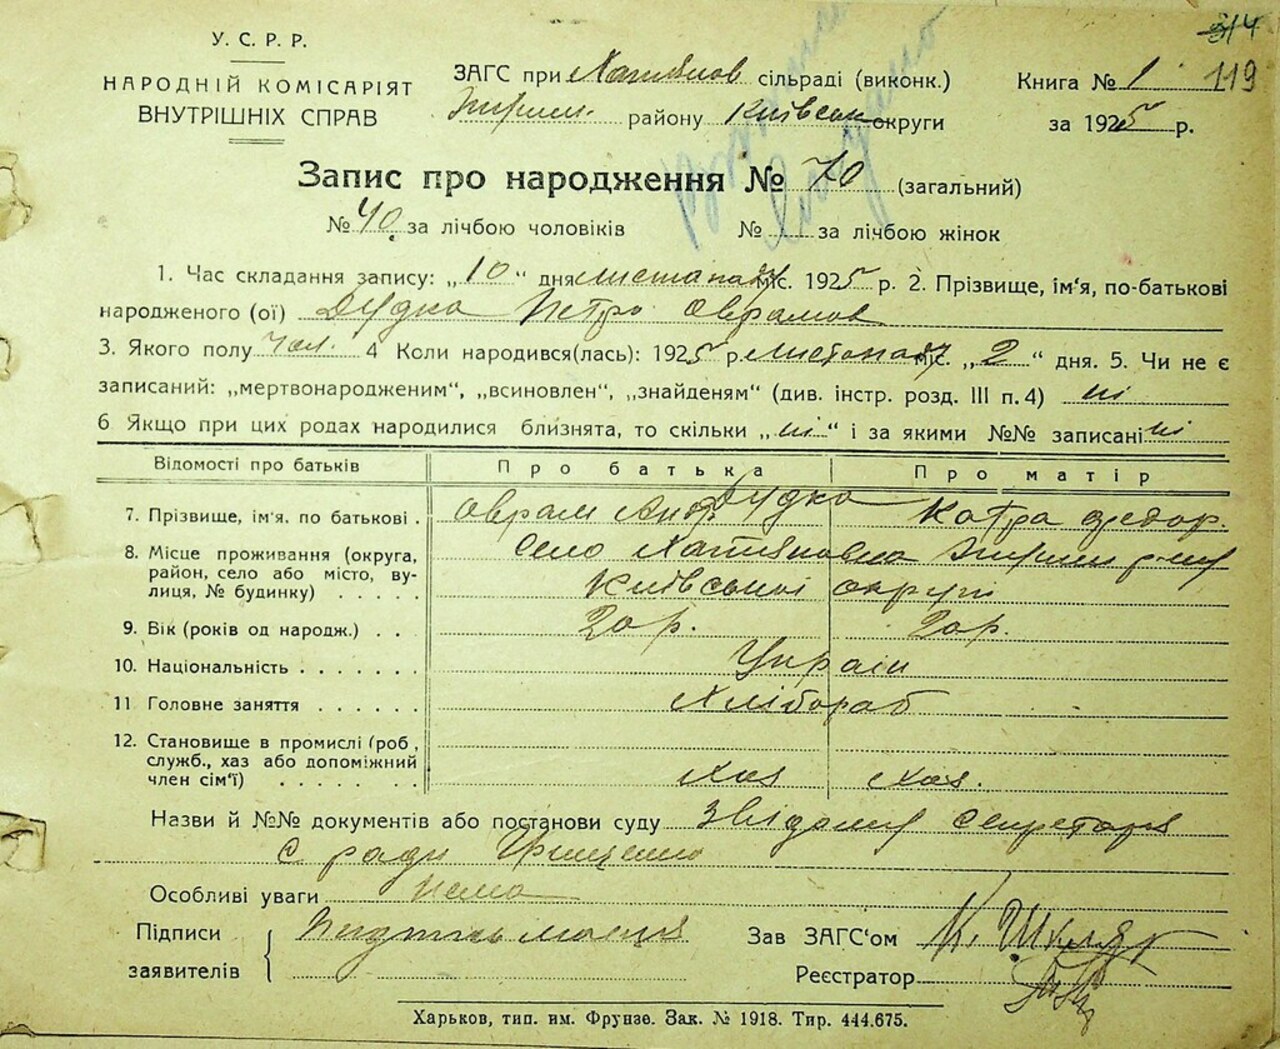 314
У. С. Р. Р.
НАРОДНІЙ КОМІСАРІЯТ
ВНУТРІШНІХ СПРАВ
ЗАГС при Хатянов сільраді (виконк.)
району Київськ округи
Книга № 1 119
за 1925 р.
Запис про народження № 70 (загальний)
№ 40 за лічбою чоловіків № за лічбою жінок
1. Час складання запису: „10“ дня листопаду міс. 1925 р. 2. Прізвище, ім‘я, по-батькові
народженого (ої) Дудка Петро Оврамов
3. Якого полу чол. 4 Коли народився(лась): 1925 р. листопаду міс. „2“ дня. 5. Чи не є
записаний: „мертвонародженим“, „всиновлен“, „знайденям“ (див. інстр. розд. III п. 4) ні
6 Якщо при цих родах народилися близнята, то скільки „ні“ і за якими №№ записані ні
Відомості про батьків Про батька Про матір
7. Прізвище, ім‘я. по батькові . Оврам Андр Дудка Катра Федор.
8. Місце проживання (округа, район, село або місто, вулиця, № будинку) . . . . . село
Київської округи
9. Вік (років од народж.) . . 20 р. 20 р.
10. Національність . . . . . . . Україн
11 Головне заняття . . . . . . Хлібороб
12. Становище в промислі (роб, служб., хаз або допоміжний член сім‘ї) . . . . . . . Хаз Хаз.
Назви й №№ документів або постанови суду З відому секретаря
с ради Грищенко
Особливі уваги нема
Підписи
заявителів
Зав ЗАГС‘ом К. Шкляр
Реєстратор
Харьков, тип. им. Фрунзе. Зак. № 1918. Тир. 444.675.